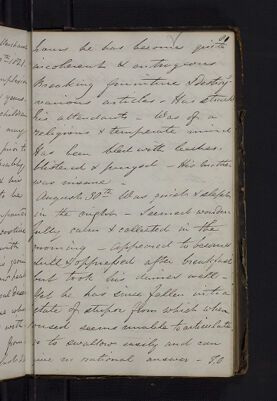 hours he has become quite
incoherent & outrageous
breaking furniture & destroy
various articles - Has struck
his attendants - Was of a
religious & temperate mind
Has been bled with leeches.
blistered & purged - His brother
was insane -
August 30th Was quiet & slept
in the night - Seemed wonder
fully calm & collected in the
morning - Appeared to become
dull & oppressed after breakfast
but took his dinner well -
Yet he has since fallen into a
state of stupor from which when
roused seems unable to articulate
or to swallow easily and can
give no rational answer - To